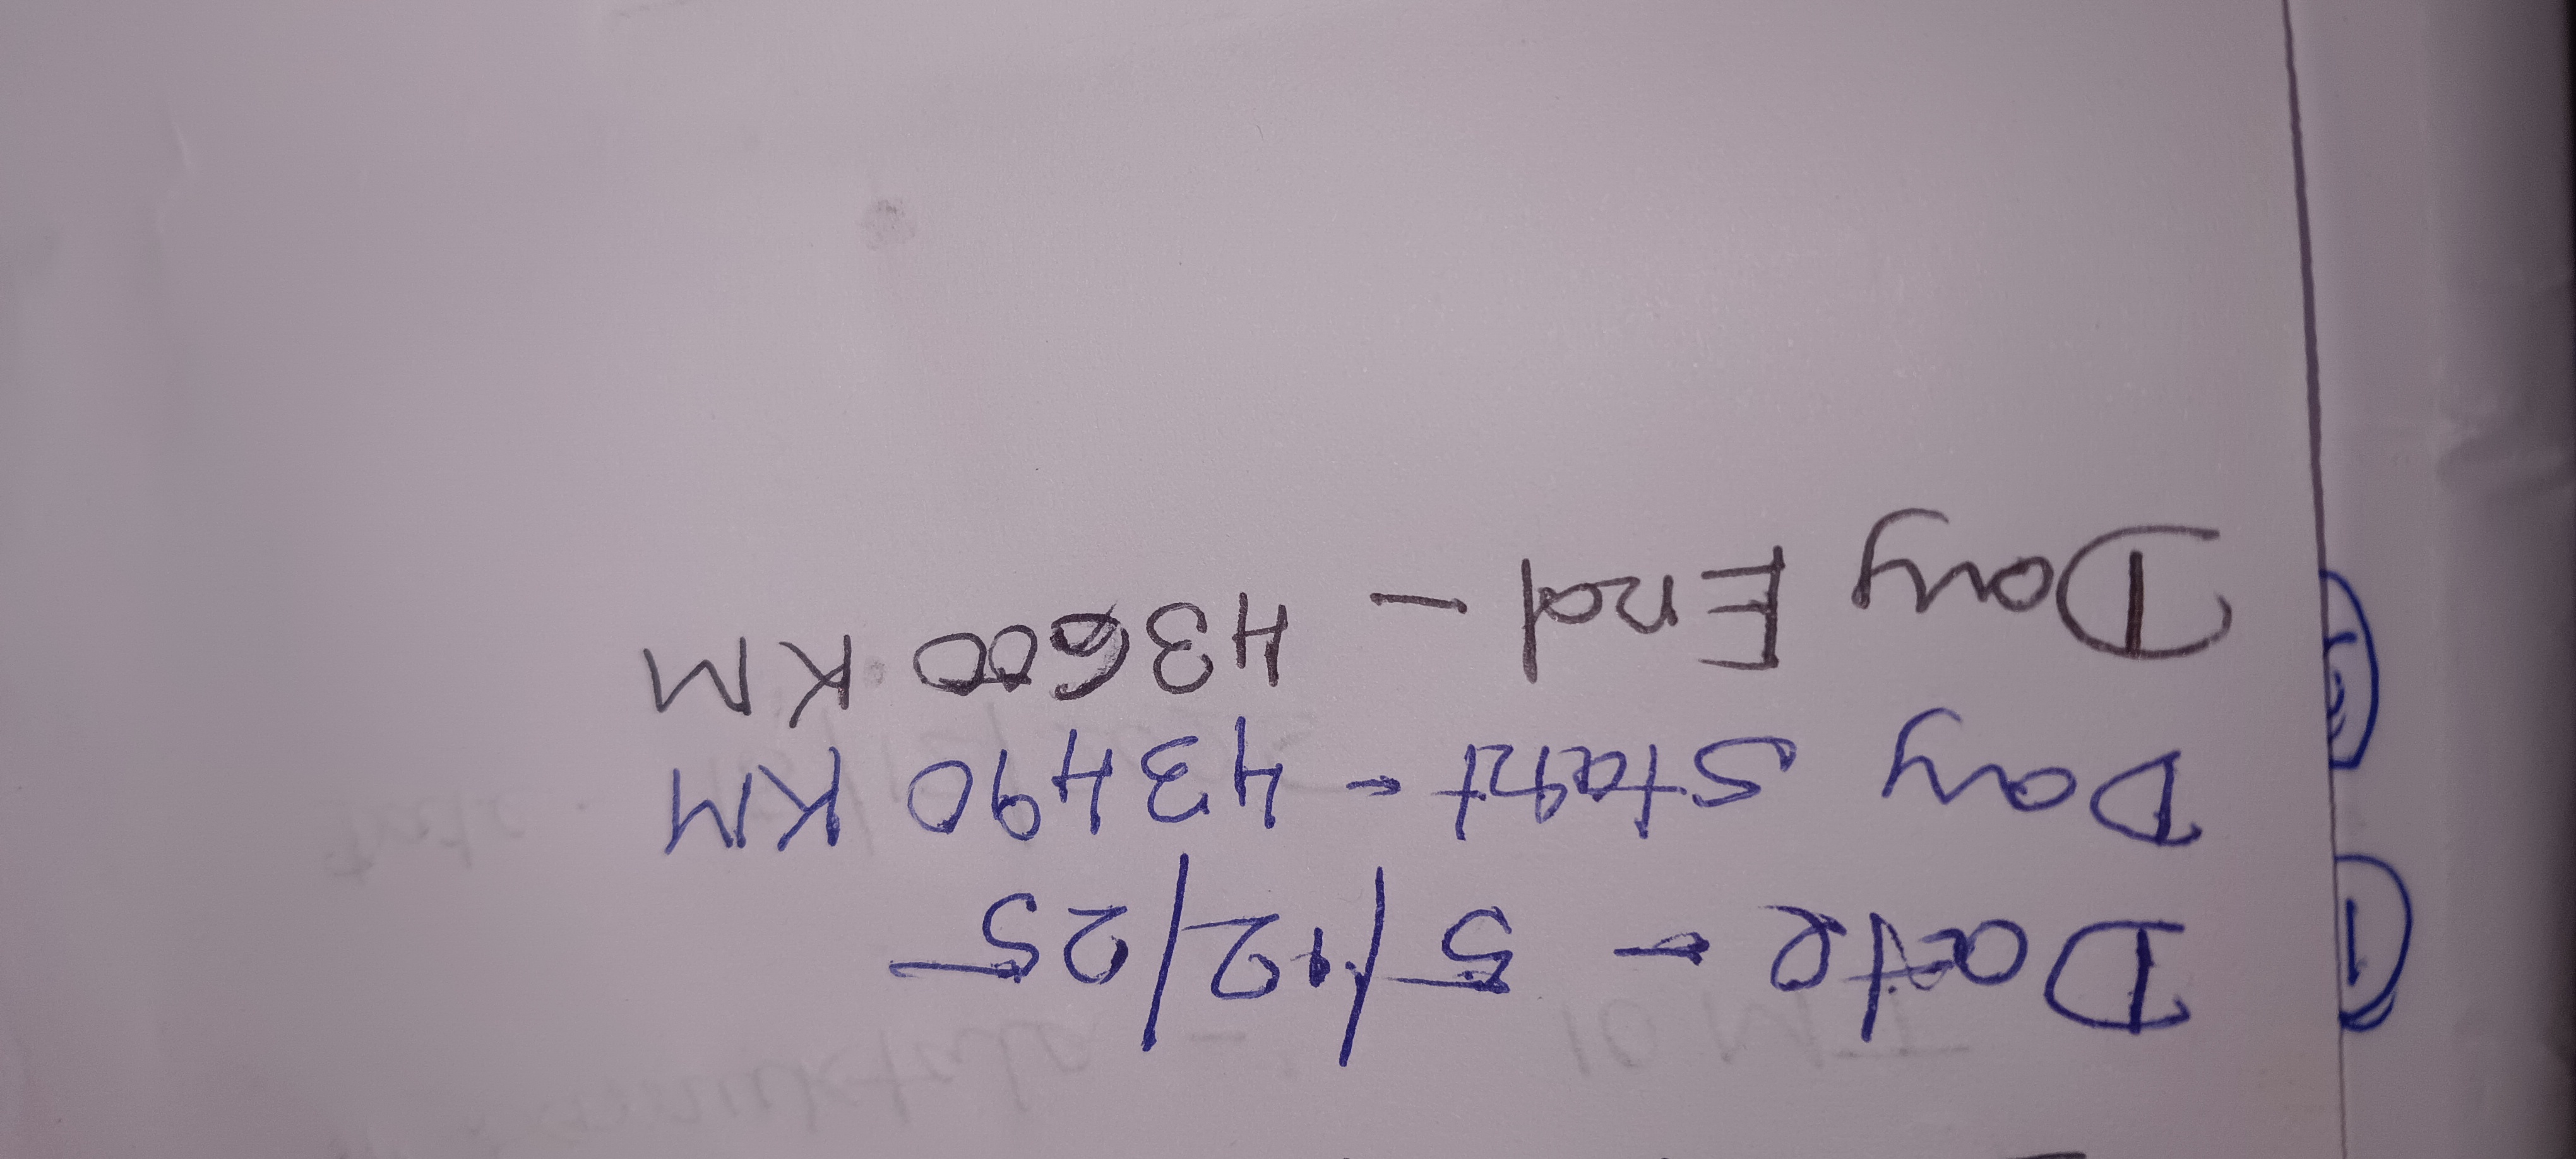 ① Date - 5/12/25
Day Start - 43490 KM
Day End - 43600 KM